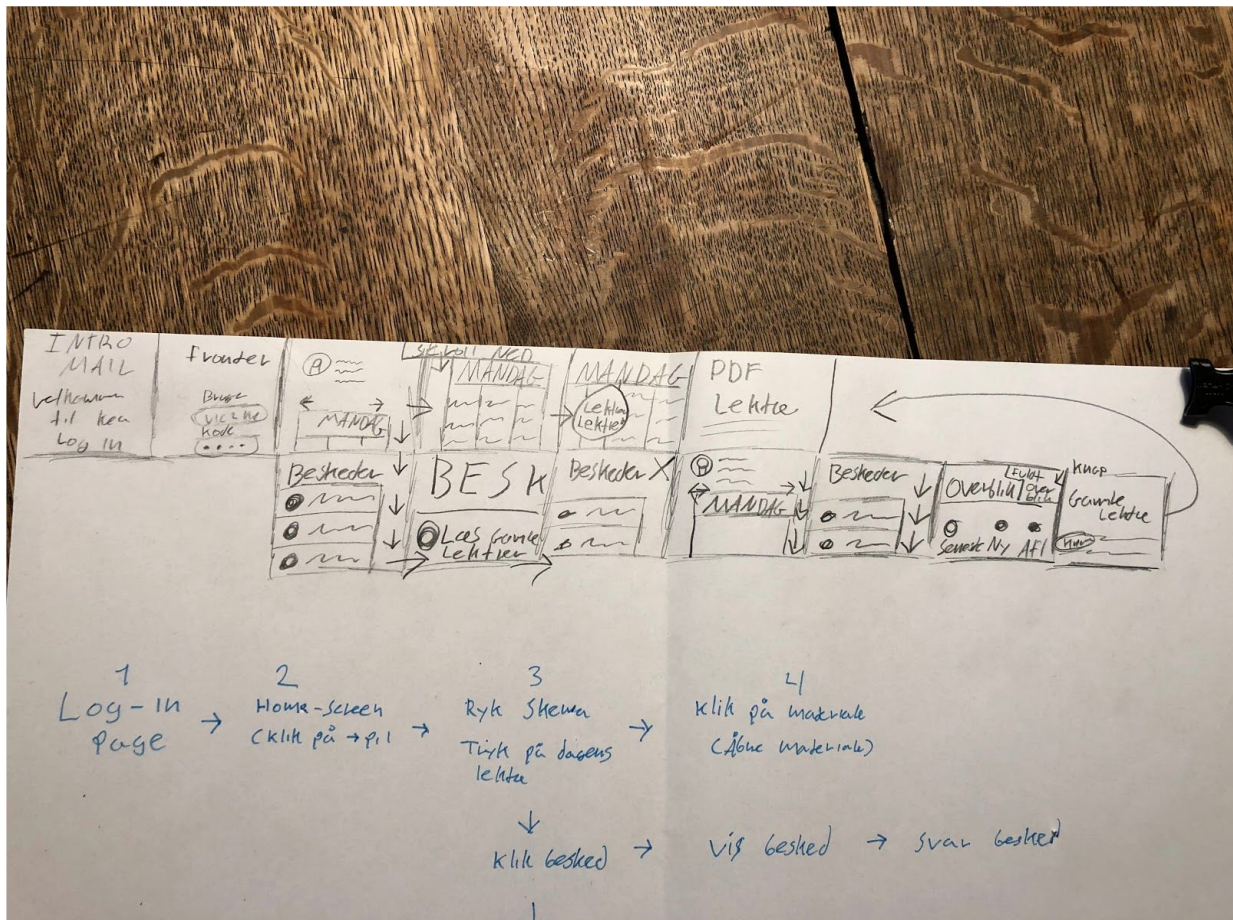 INTRO
MAIL
Velkommen
til hea
Log in
Fronter
Bruge
Kode
MANDAG
skroll NED
MANDAG
MANDAG
Lektier
PDF
Lektie
Beskeder
BESK
Læs Gamle
Lektier
Beskeder X
MANDAG
Beskeder
Overblik
Fuldt
Over
blik
Senest Ny Afl
Knap
Gamle
Lektie
1
Log-in
Page
2
Home-screen
(Klik på → pil
3
Ryk Skema
Tryk på dagens
lektie
4
Klik på materiale
(Åbne materiale)
Klik besked
vis besked
svar besked